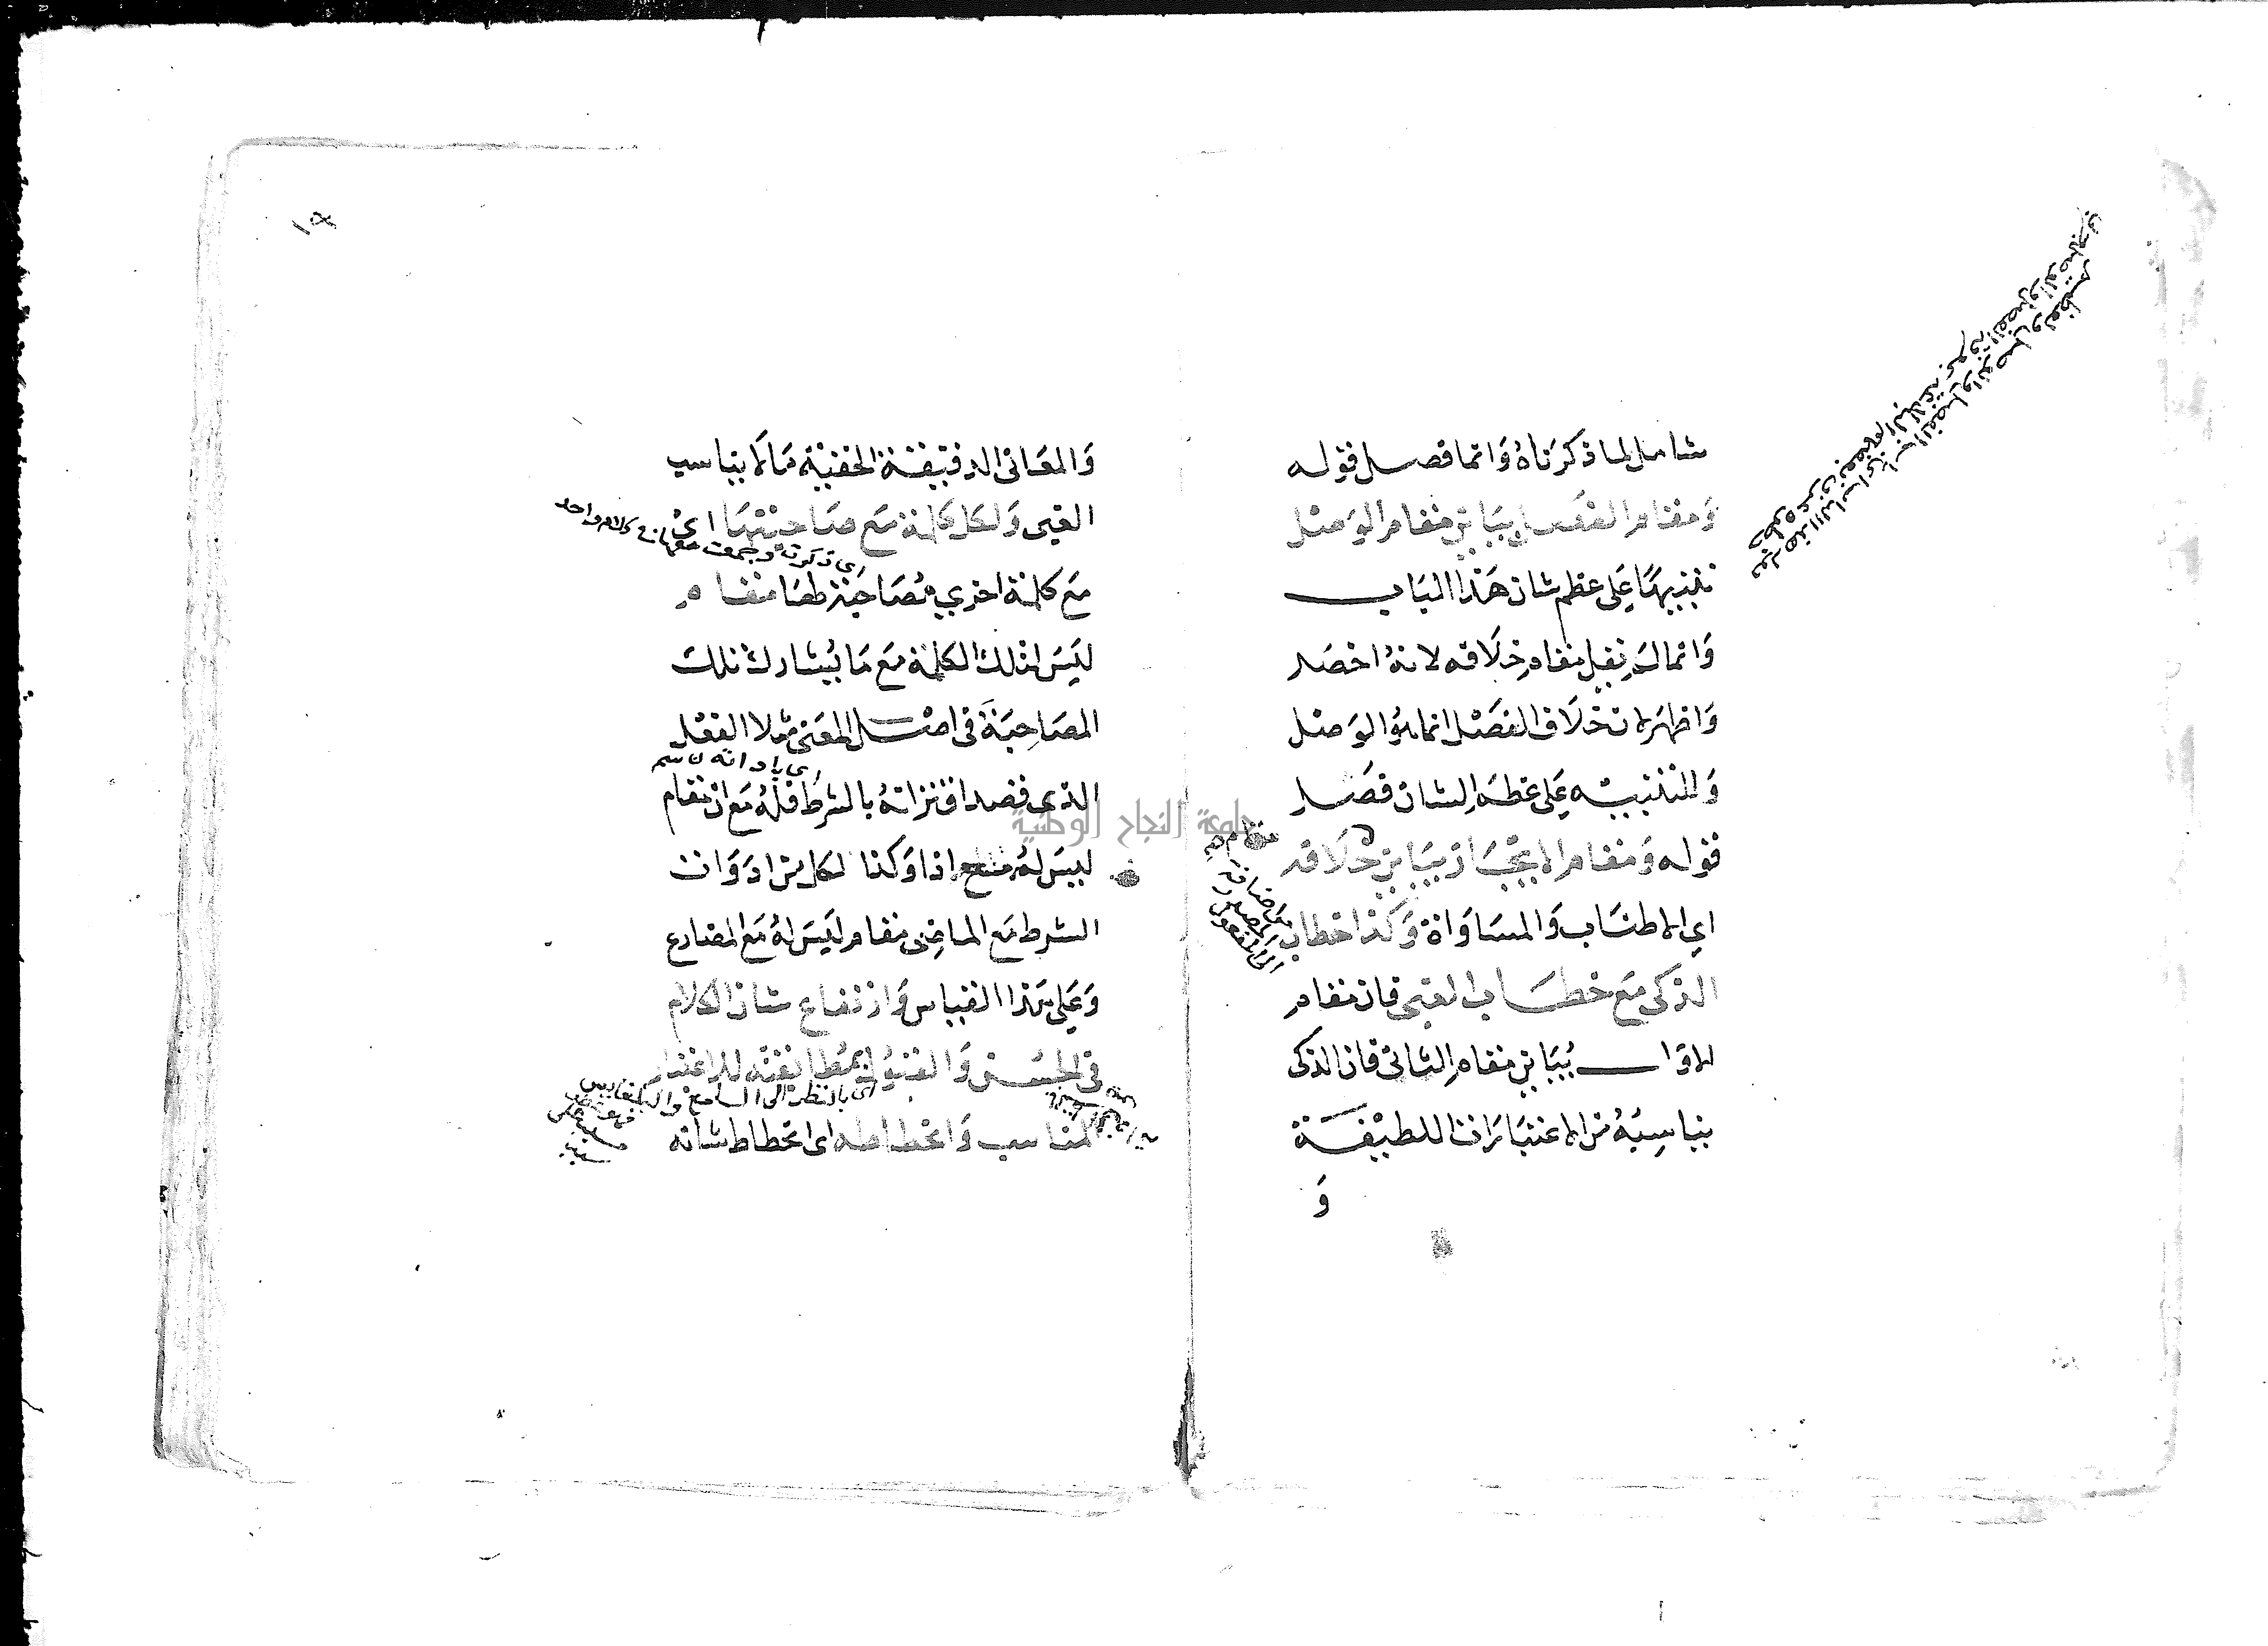 شامل لما ذكرناه وانما فصل قوله
ومقام الفصل يباين مقام الوصل
تنبيها على عظم شان هذا الباب
وانما لم يقل مقام خلافه لانه اخصر
واظهر لان خلاف الفصل انما هو الوصل
وللتنبيه على عظم الشان فصل
قوله ومقام الايجاز يباين خلافه
اي الاطناب والمساواة وكذا خطاب
الذكي مع خطاب الغبي فان مقام
الاول يباين مقام الثاني فان الذكي
يناسبه من الاعتبارات اللطيفة
و
مقام
اضافة
المصدر
الى المفعول
١٨
والمعاني الدقيقة الخفية ما لا يناسب
الغبي ولكل كلمة مع صاحبتها اي
اي ذكرت وجمعت معها في كلام واحد
مع كلمة اخري مصاحبة لها مقام
ليس لتلك الكلمة مع ما يشارك تلك
المصاحبة في اصل المعنى مثلا الفعل
الذي قصد اقترانه بالشرط فله مع ان مقام
ليس له مع اذا وكذا لكل من ادوات
الشرط مع الماضي مقام ليس له مع المضارع
وعلى هذا القياس وارتفاع شان الكلام
في الحسن والقبول بمطابقته للاعتبار
اي بالنظر الى السامع
المناسب وانحطاطه اي انحطاط شانه
جامعة النجاح الوطنية